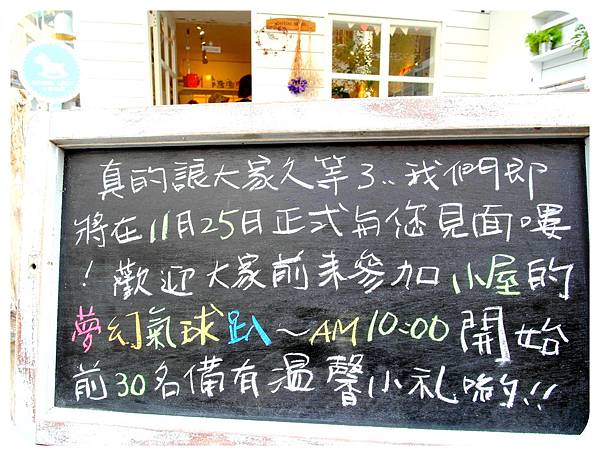 真的讓大家久等了..我們即
將在11月25日正式與您見面嘍
！歡迎大家前來參加小屋的
夢幻氣球趴～AM10:00開始
前30名備有溫馨小礼喲!!